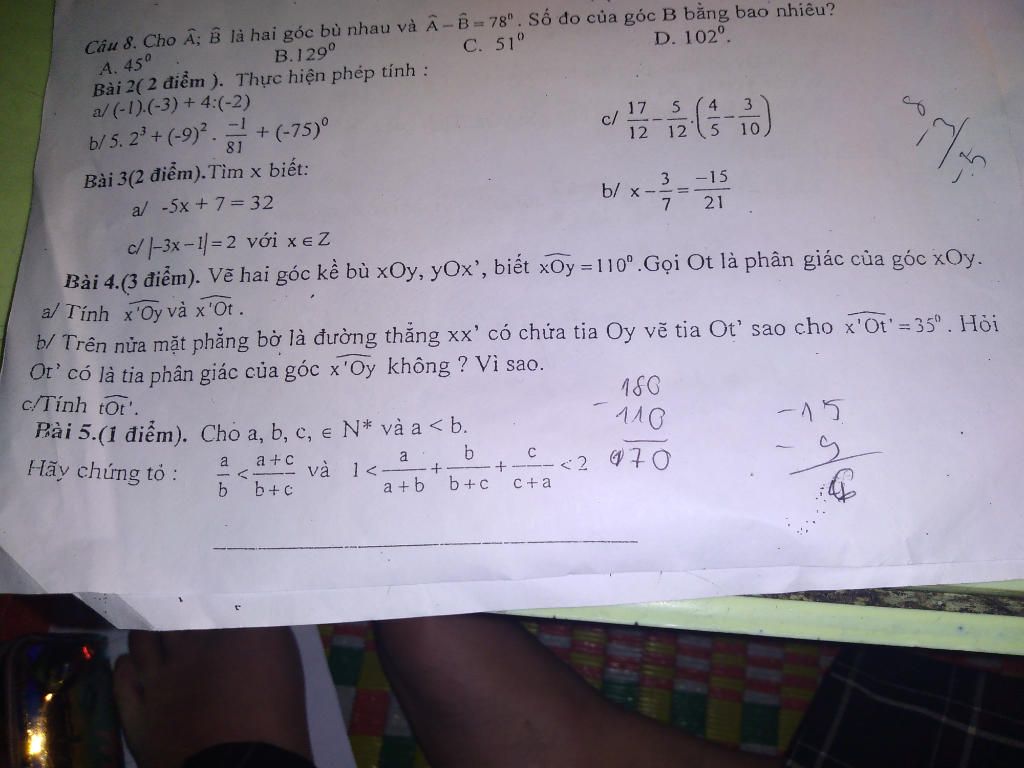 Câu 8. Cho Â; B̂ là hai góc bù nhau và Â − B̂ = 78⁰. Số đo của góc B bằng bao nhiêu?
A. 45⁰ B. 129⁰ C. 51⁰ D. 102⁰.
Bài 2( 2 điểm ). Thực hiện phép tính :
a/ (-1).(-3) + 4:(-2)
b/ 5. 2³ + (-9)² . -1/81 + (-75)⁰
c/ 17/12 − 5/12 . (4/5 − 3/10)
Bài 3(2 điểm).Tìm x biết:
a/ -5x + 7 = 32
b/ x − 3/7 = −15/21
c/ |−3x −1| = 2 với x ∈ Z
Bài 4.(3 điểm). Vẽ hai góc kề bù xOy, yOx’, biết xOy = 110⁰.Gọi Ot là phân giác của góc xOy.
a/ Tính x'Oy và x'Ot .
b/ Trên nửa mặt phẳng bờ là đường thẳng xx’ có chứa tia Oy vẽ tia Ot’ sao cho x'Ot' = 35⁰ . Hỏi
Ot’ có là tia phân giác của góc x'Oy không ? Vì sao.
c/Tính tOt' .
Bài 5.(1 điểm). Cho a, b, c, ∈ N* và a < b.
Hãy chứng tỏ : a/b < a+c/b+c và 1 < a/a+b + b/b+c + c/c+a < 2
- 180
110
070
-15
- 9